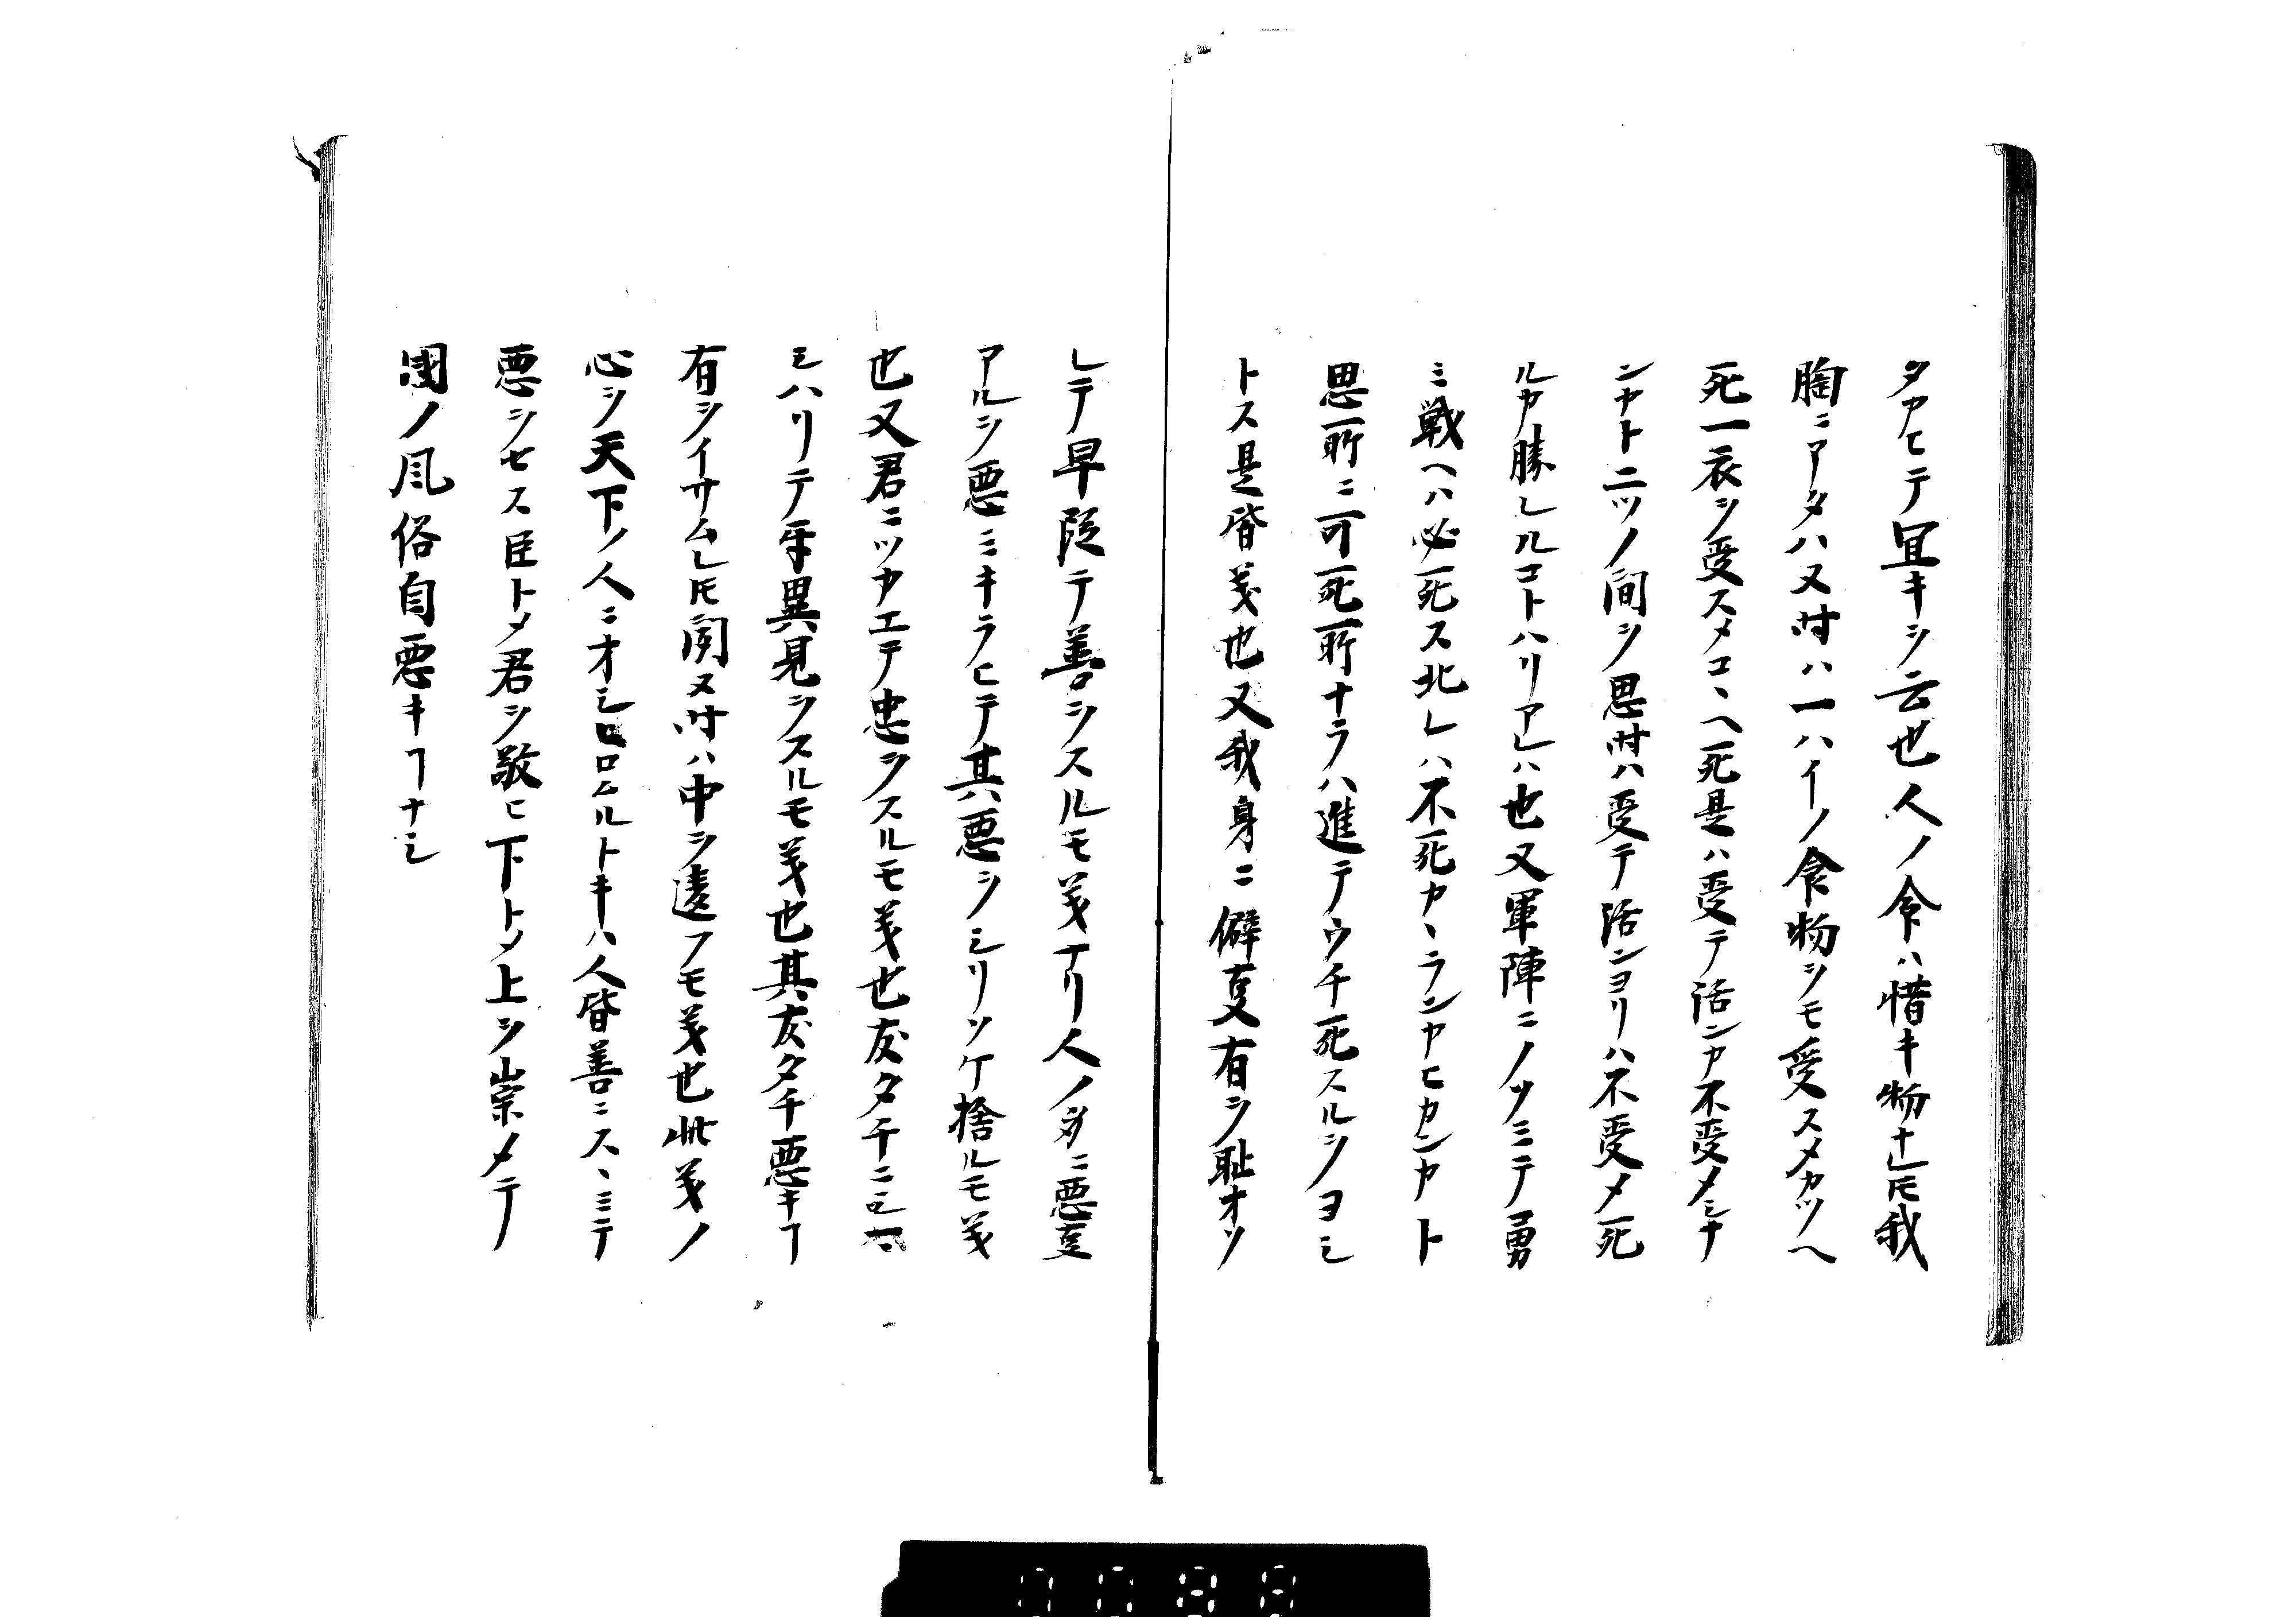 タカヒテ宜キヲ云也人ノ命ハ惜キ物ナレ𪜈我
胸ニアタハ又時ハ一ハイノ食物ヲモ受スメカツヘ
死一衣ヲ受スメコヽヘ死是ハ受テ活ンカ不受メシナ
ンカト二ツノ間ヲ思時ハ受テ活ンヨリハ不受メ死
ルカ勝レルコトハリアレハ也又軍陣ニノソミテ勇
ミ戦ヘハ必死ス北レハ不死カヽランヤヒカンカト
思所ニ可死所ナラハ進テウチ死スルヲヨシ
トス是皆義也又我身ニ僻事有ヲ恥オソ
レテ早改テ善ヲスルモ義ナリ人ノ身ニ悪事
アルヲ悪ミキラヒテ其悪ヲシリソケ捨ルモ義
也又君ニツカエテ忠ヲスルモ義也友タチニ
シハリテ異見ヲスルモ義也其友タチ悪キヿ
有ヲイサムレ𪜈聞又時ハ中ヲ遠フモ義也此義ノ
心ヲ天下ノ人ニオシヒロムルトキハ人皆善ニスヽミテ
悪ヲセス臣トメ君ヲ敬ヒ下トメ上ヲ崇メテ
国ノ風俗自悪キヿナシ